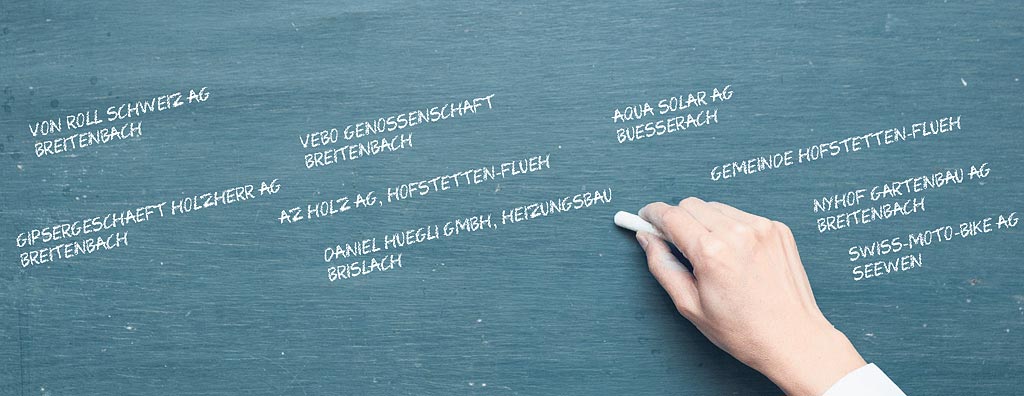 VON ROLL SCHWEIZ AG
BREITENBACH
VEBO GENOSSENSCHAFT
BREITENBACH
AQUA SOLAR AG
BUESSERACH
GEMEINDE HOFSTETTEN-FLUEH
GIPSERGESCHAEFT HOLZHERR AG
BREITENBACH
AZ HOLZ AG, HOFSTETTEN-FLUEH
DANIEL HUEGLI GMBH, HEIZUNGSBAU
BRISLACH
NYHOF GARTENBAU AG
BREITENBACH
SWISS-MOTO-BIKE AG
SEEWEN